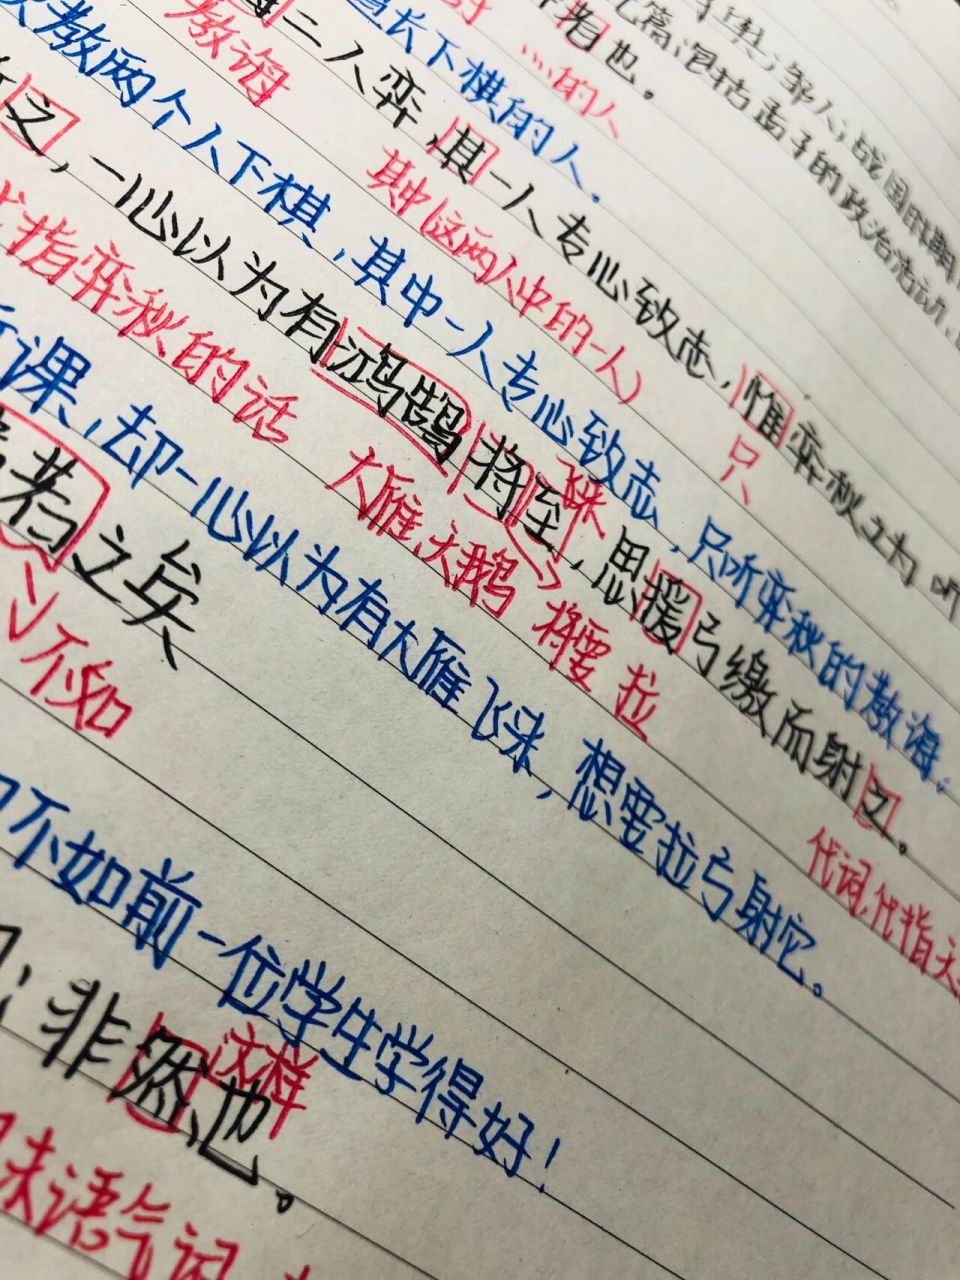 子姓；邹人；战国时期
元篇，记括孟子的政治活动，
者也。
……的人
善长下棋的人。
教诲
诲二人弈，其一人专心致志，惟弈秋之为听
其中（这两人中的一人）
只
教两个人下棋，其中一人专心致志，只听弈秋的教诲。
之，一心以为有鸿鹄将至，思援弓缴而射之。
指弈秋的话
大雁、天鹅
飞来
将要
拉
代词，代指天
课，却一心以为有大雁飞来，想要拉弓射它。
若之矣
不如
不如前一位学生学得好！
：非然也。
这样
末语气词